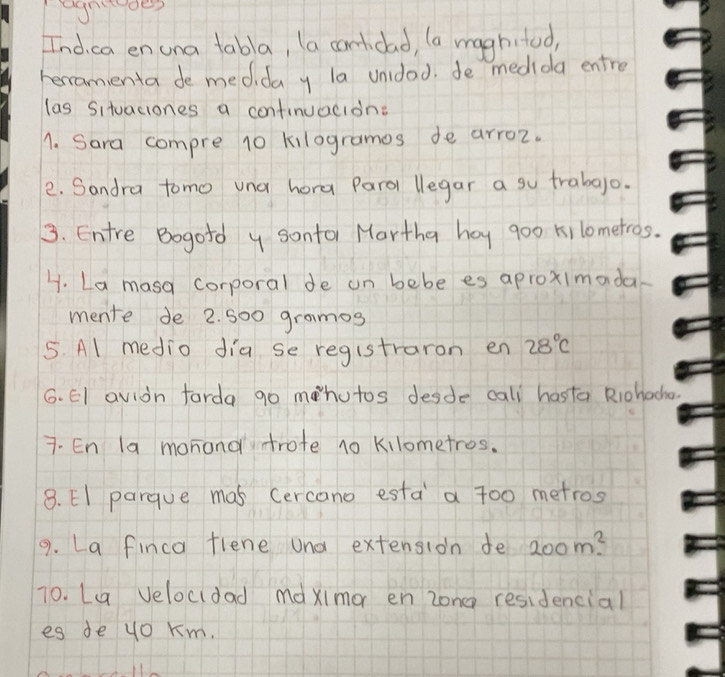 Magnitudes
Indica en una tabla, la cantidad, la magnitud,
herramienta de medida y la unidad. de medida entre
las situaciones a continuación:
1. Sara compre 10 kilogramos de arroz.
2. Sandra tomo una hora para llegar a su trabajo.
3. Entre Bogotá y santa Martha hay 900 kilometros.
4. La masa corporal de un bebe es aproximada-
mente de 2.500 gramos
5. Al medio día se registraron en 28°C
6. El avión tarda 90 minutos desde cali hasta Riohacha.
7. En la mañana trote 10 Kilometros.
8. El parque más cercano está a 700 metros
9. La finca tiene una extensión de 200m².
10. La velocidad máxima en zona residencial
es de 40 Km.